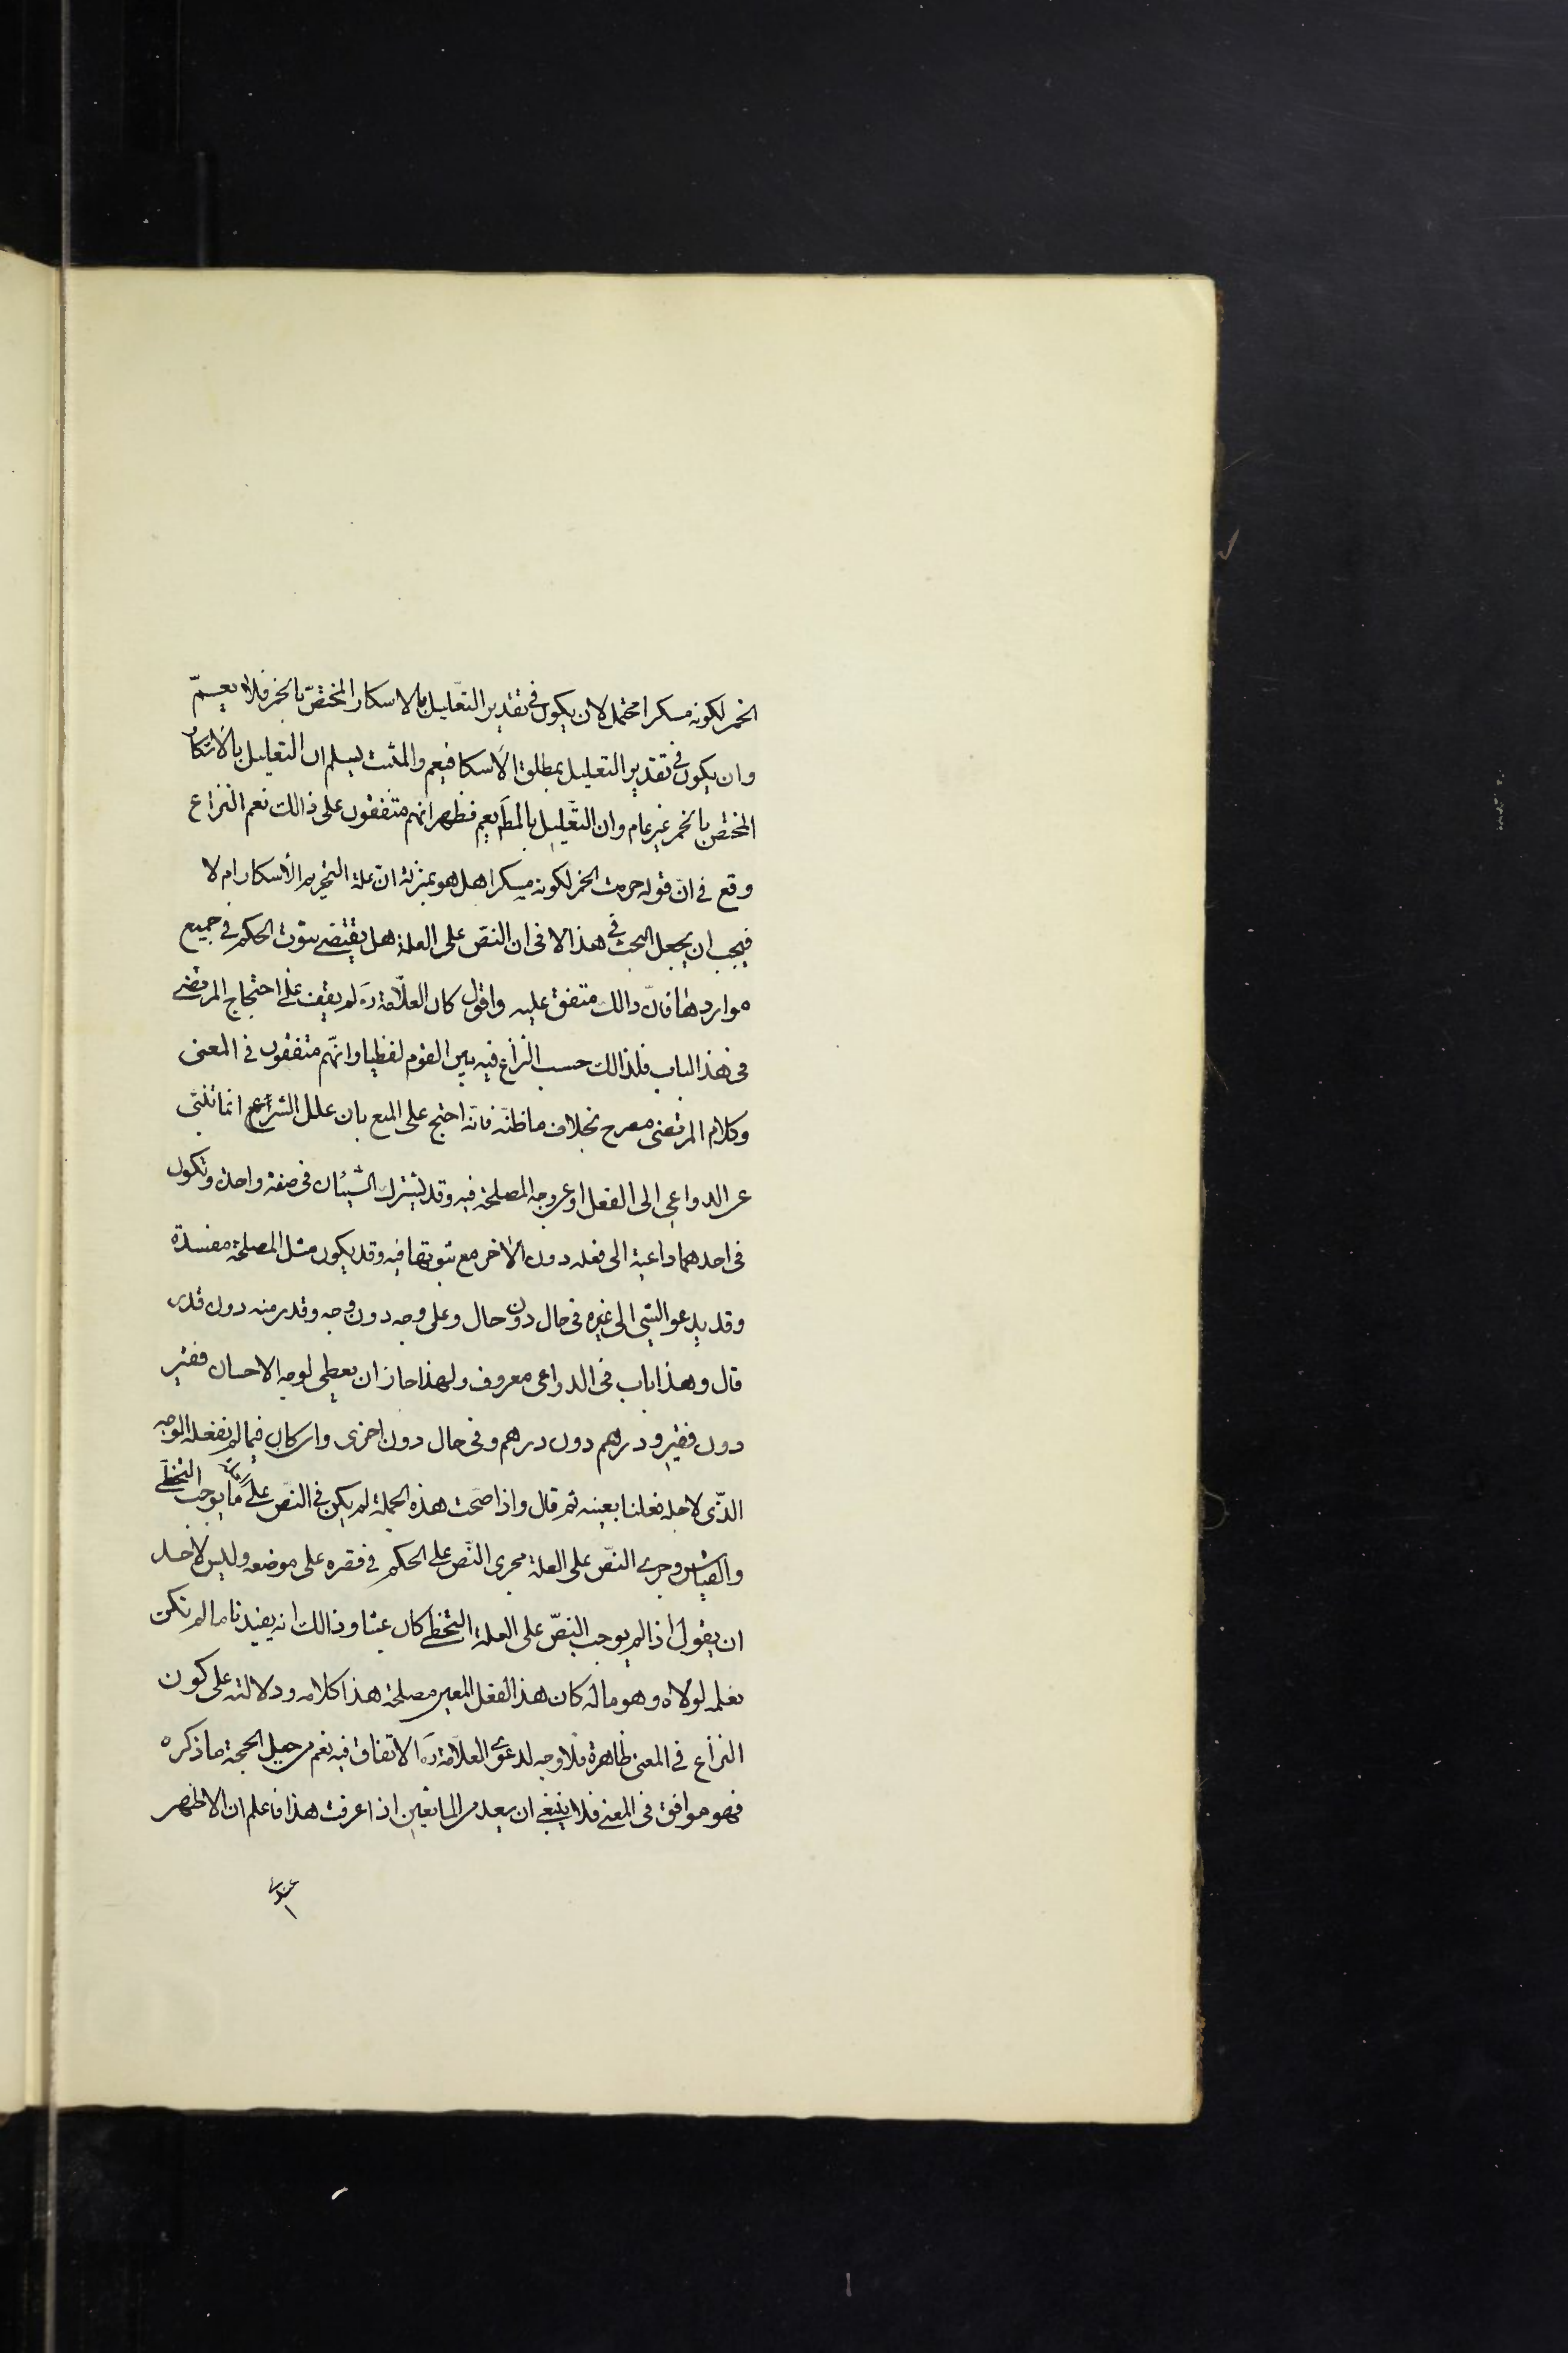 الخمر لكونه مسكرا محتمل لان يكون فى تقدير التعليل بالاسكار المختصّ بالخمر فلا يعمّ
وان يكون فى تقدير التعليل بمطلق الاسكا فيعم والمثبت يسلم ان التعليل بالاسكار
المختص بالخمر غير عام وان التعليل بالمطلق يعم فظهر انهم متفقون على ذالك نعم النزاع
وقع فى انّ قوله حرمت الخمر لكونه مسكرا هل هو بمنزلة انّ علة التحريم الاسكار ام لا
فيجب ان يجعل البحث فى هذا لا فى ان النصّ على العلة هل يقتضى ثبوت الحكم فى جميع
مواردها فانّ ذالك متفق عليه واقول كان العلّامة ره لم يقف على احتجاج المرتضى
فى هذا الباب فلذالك حسب النزاع فيه بين القوم لفظيا وانّهم متفقون فى المعنى
وكلام المرتضى مصرح بخلاف ما ظنّه فانّه احتج على المنع بان علل الشرع انما تنبّى
عن الدواعى الى الفعل او عن وجه المصلحة فيه وقد يشترك الشيئان فى صفة واحدة وتكون
فى احدهما داعية الى فعله دون الاخر مع ثبوتها فيه وقد يكون مثل المصلحة مفسدة
وقد يدعو الشى الى غيره فى حال دون حال وعلى وجه دون وجه وقدر منه دون قدر
قال وهذا باب فى الدواعى معروف ولهذا جاز ان يعطى لوجه الاحسان فقير
دون فقير ودرهم دون درهم وفى حال دون اخرى وان كان فيما لم نفعله الوجه
الذّى لاجله فعلنا بعينه ثم قال واذا صحّت هذه الجملة لم يكن فى النصّ على العلة ما يوجب التخطّى
والقياس وجرى النصّ على العلة مجرى النّص على الحكم فى قصره على موضعه وليس لاحد
ان يقول اذا لم يوجب النصّ على العلة التخطى كان عبثا وذالك انه يفيدنا ما لم نكن
نعلمه لولاه وهو ما له كان هذا الفعل المعين مصلحة هذا كلامه ودلالته على كون
النزاع فى المعنى ظاهرة فلا وجه لدعوى العلّامة ره الاتفاق فيه نعم من جعل الحجة ما ذكره
فهو موافق فى المعنى فلا ينبغى ان يعد من المانعين اذا عرفت هذا فاعلم ان الاظهر
عندى